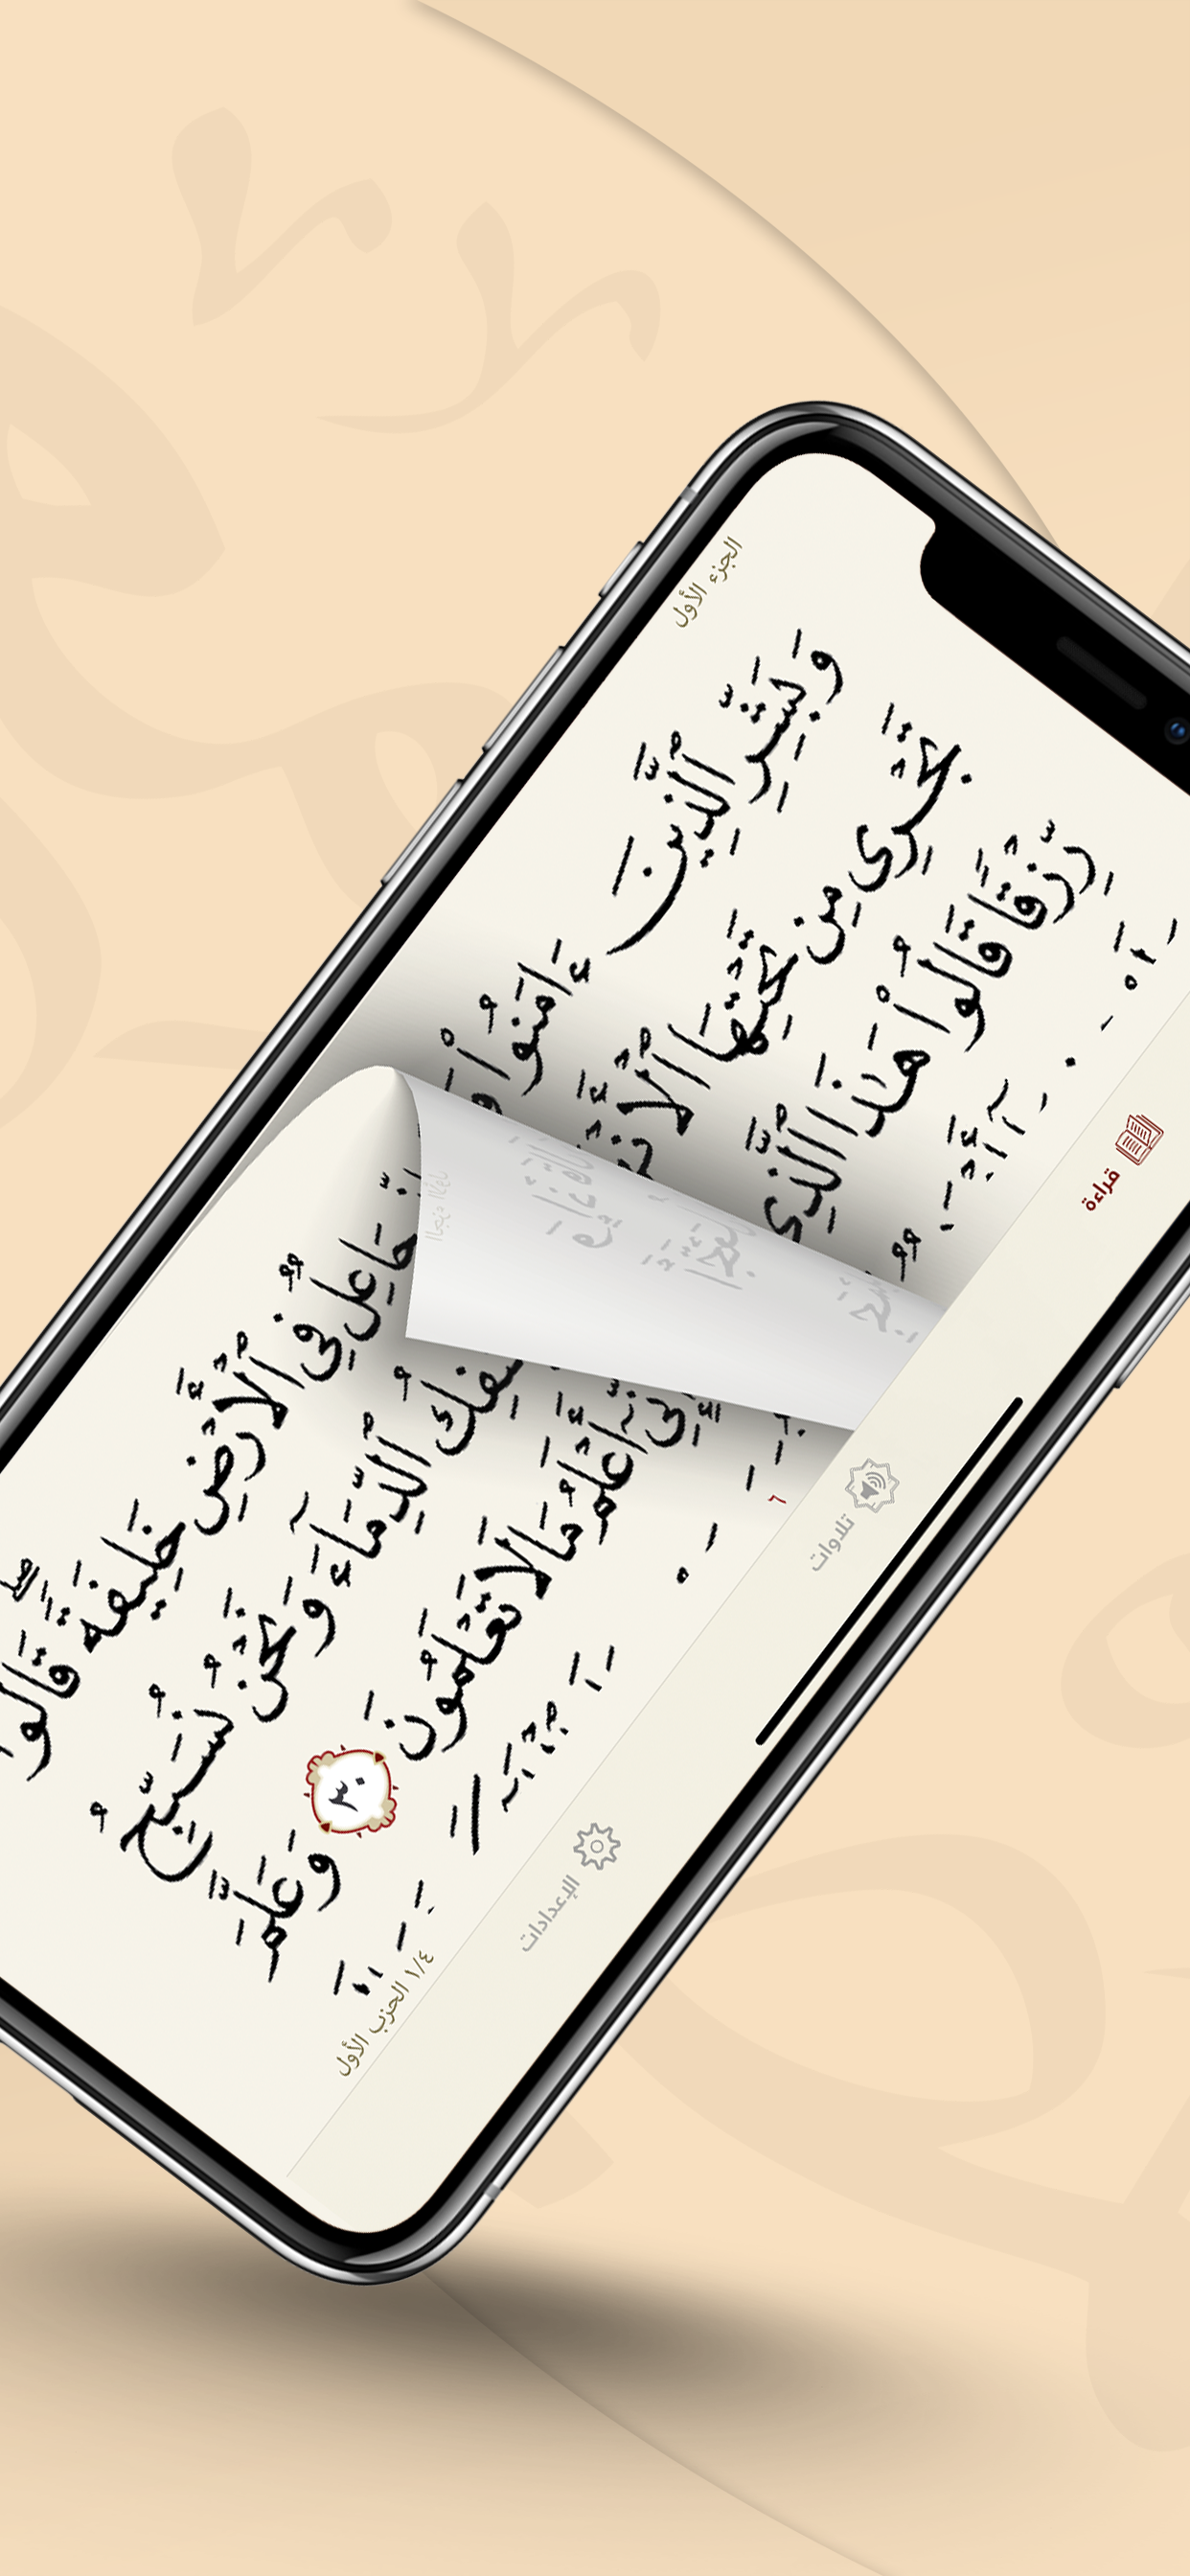 الجزء الأول
وَبَشِّرِ ٱلَّذِينَ ءَامَنُوا۟
تَجْرِى مِن تَحْتِهَا ٱلْأَنْهَـ
رِّزْقًا قَالُوا۟ هَـٰذَا ٱلَّذِى
جَاعِلٌ فِى ٱلْأَرْضِ خَلِيفَةً ۖ قَالُوٓا۟
وَيَسْفِكُ ٱلدِّمَآءَ وَنَحْنُ نُسَبِّحُ
إِنِّىٓ أَعْلَمُ مَا لَا تَعْلَمُونَ ٣٠ وَعَلَّمَ
٦
١/٤ الحزب الأول
قراءة
تلاوات
الإعدادات